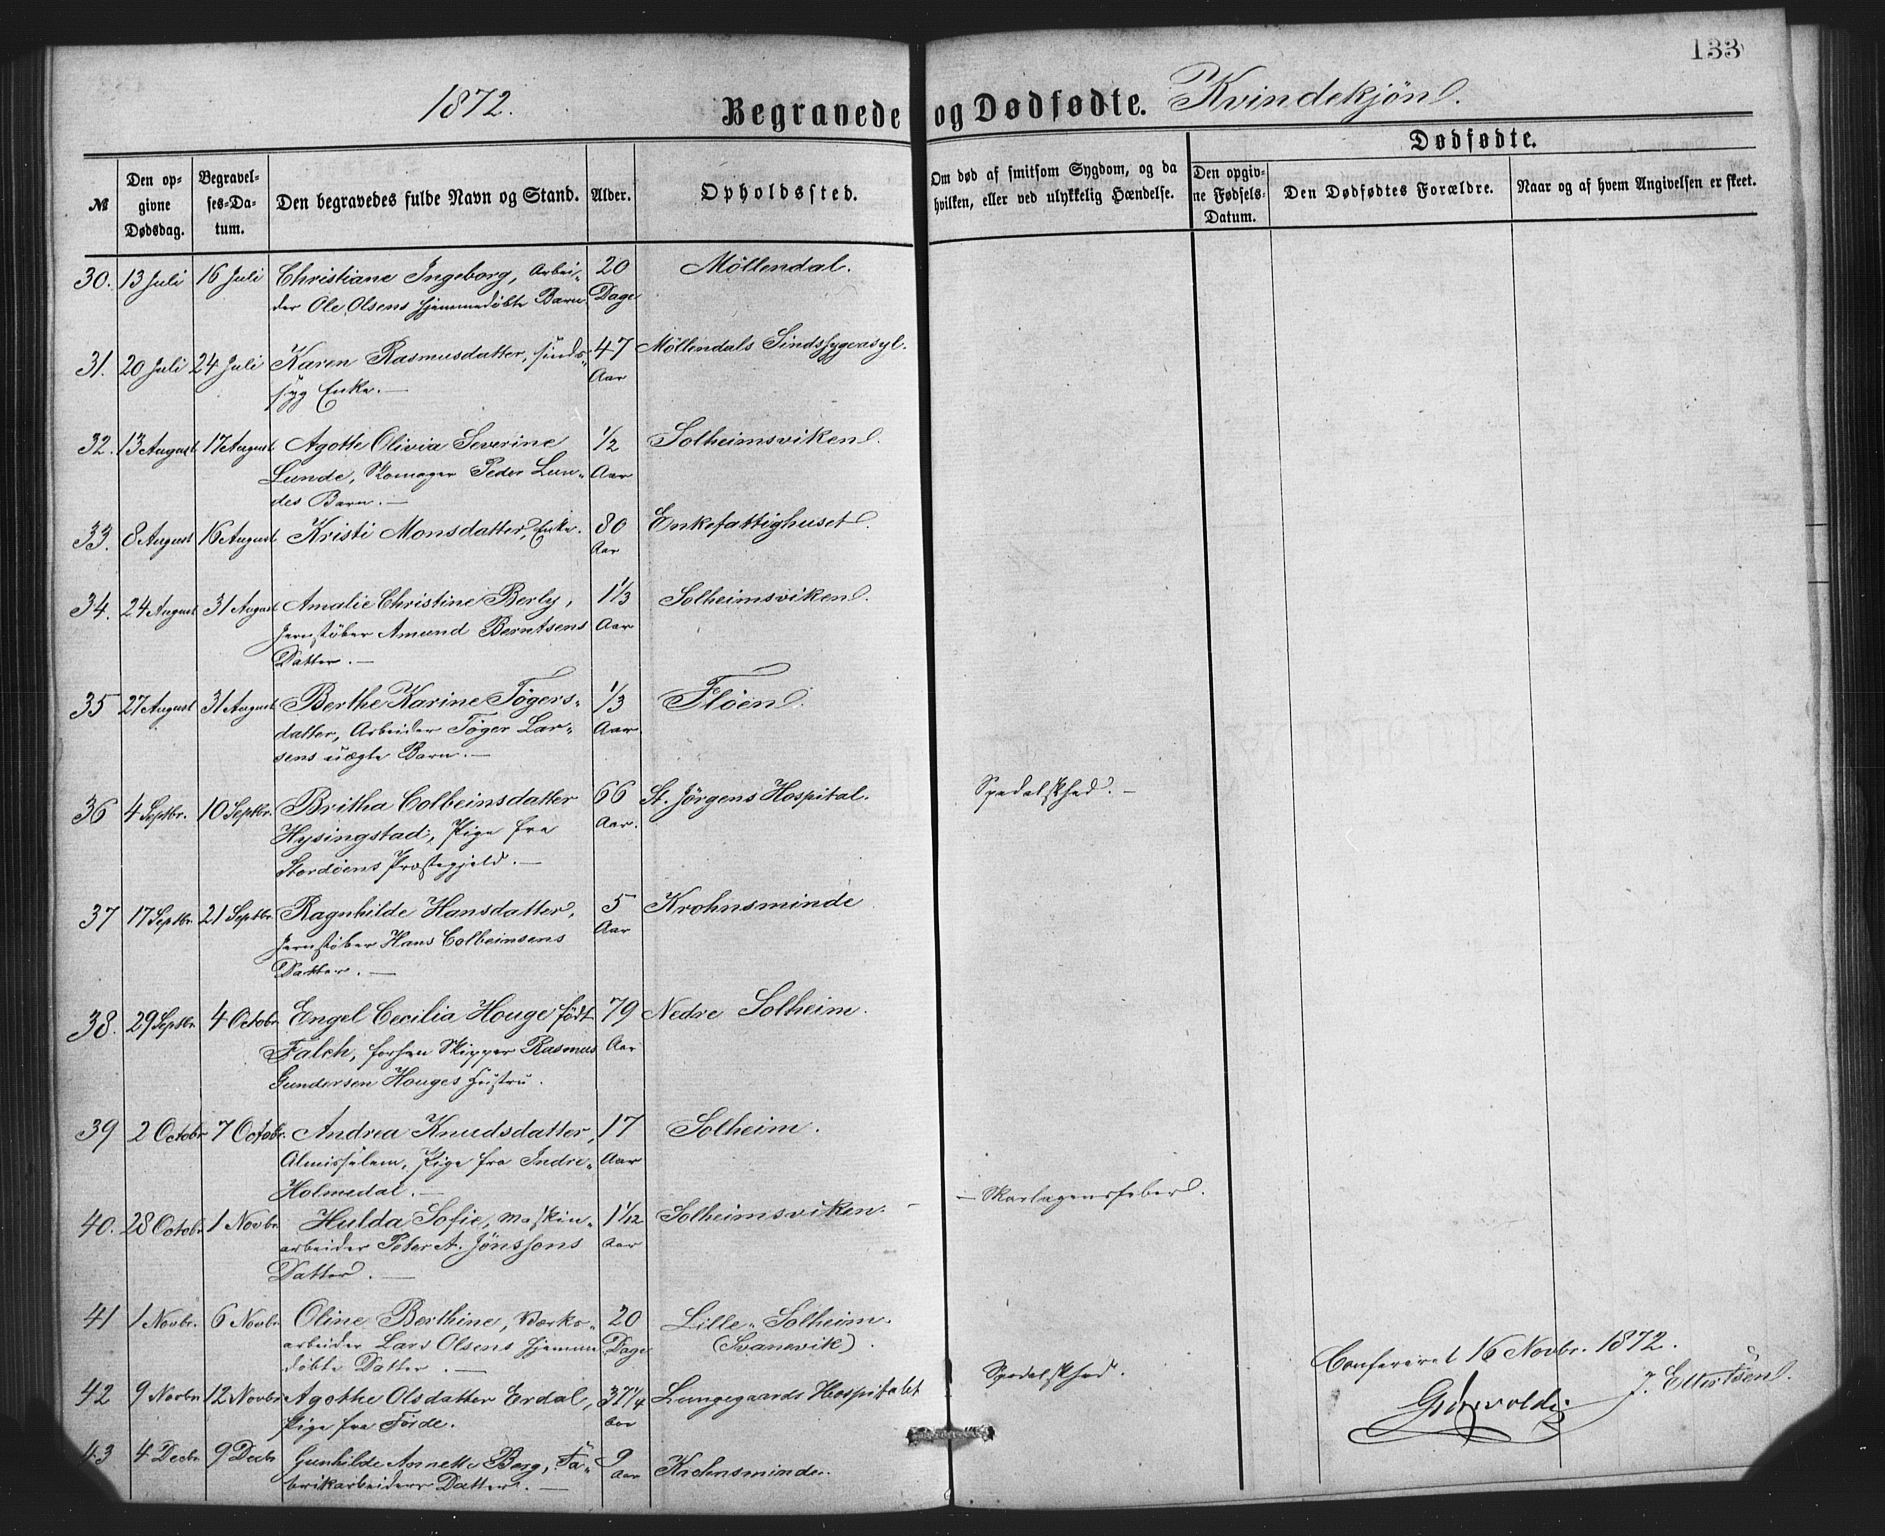 133
1872. Begravede og Dødfødte. Kvindekjøn.
№ Den opgivne Dødsdag. Begravelses-Datum. Den begravedes fulde Navn og Stand. Alder. Opholdssted. Om død af smitsom Sygdom, og da hvilken, eller ved ulykkelig Hændelse. Dødfødte. Den opgivne Fødsels-Datum. Den Dødfødtes Forældre. Naar og af hvem Angivelsen er skeet.
30. 13 Juli 16 Juli Christiane Ingeborg, Arbei- 20 Möllendal.
der Ole Olsens hjemmedøbte Barn. Dage
31. 20 Juli 24 Juli Karen Rasmusdatter, sinds- 47 Möllendals Sindssygeasyl.
syg Enke. — Aar
32. 13 August 17 August Agothe Olivia Severine 1/2 Solheimsviken.
Lunde, Skomager Peder Lun- Aar
des Barn. —
33. 8 August 16 August Kristi Monsdatter, Enke. 80 Enkefattighuset.
Aar
34. 24 August 31 August Amalie Christine Berly, 1 1/3 Solheimsviken.
Jernstøber Amund Berntsens Aar
Datter. —
35 27 August 31 August Berthe Karine Tögers- 1/3 Flöen.
datter, Arbeider Töger Lar- Aar
sens uægte Barn. —
36 4 Septbr. 10 Septbr. Britha Colbeinsdatter 66 St. Jörgens Hospital. Spedalskhed. —
Hysingstad, Pige fra Aar.
Stordöens Præstegjeld. —
37 17 Septbr. 21 Septbr. Ragnhilde Hansdatter, 5 Krohnsminde.
Jernstøber Hans Colbeinsens Aar
Datter. —
38. 29 Septbr. 4 Octobr. Engel Cecilia Houge født 79 Nedre Solheim.
Falch, forhen Skipper Rasmus Aar
Gundersen Houges Hustru.
39 2 Octobr 7 Octobr. Andrea Knudsdatter, 17 Solheim.
Almisselem, Pige fra Indre- Aar
Holmedal. —
40. 28 Octobr 1 Novbr. Hulda Sofie, Maskin- 1 1/12 Solheimsviken. — — Skarlagensfeber.
arbeider Peter A. Jönssons Aar
Datter. —
41 1 Novbr. 6 Novbr. Oline Berthine, Værks- 20 Lille-Solheim.
arbeider Lars Olsens hjemme Dage (Svanevik).
døbte Datter. —
42 9 Novbr. 12 Novbr. Agothe Olsdatter Erdal, 37 1/4 Lungegaards Hospitalet Spedalskhed.
Pige fra Førde. Aar
43 4 Decbr. 9 Decbr. Gunhilde Annette Berg, Fa- 9 Krohnsminde.
brikarbeiders Datter. — Aar
Confereret 16 Novbr. 1872.
J. Ellertsen.